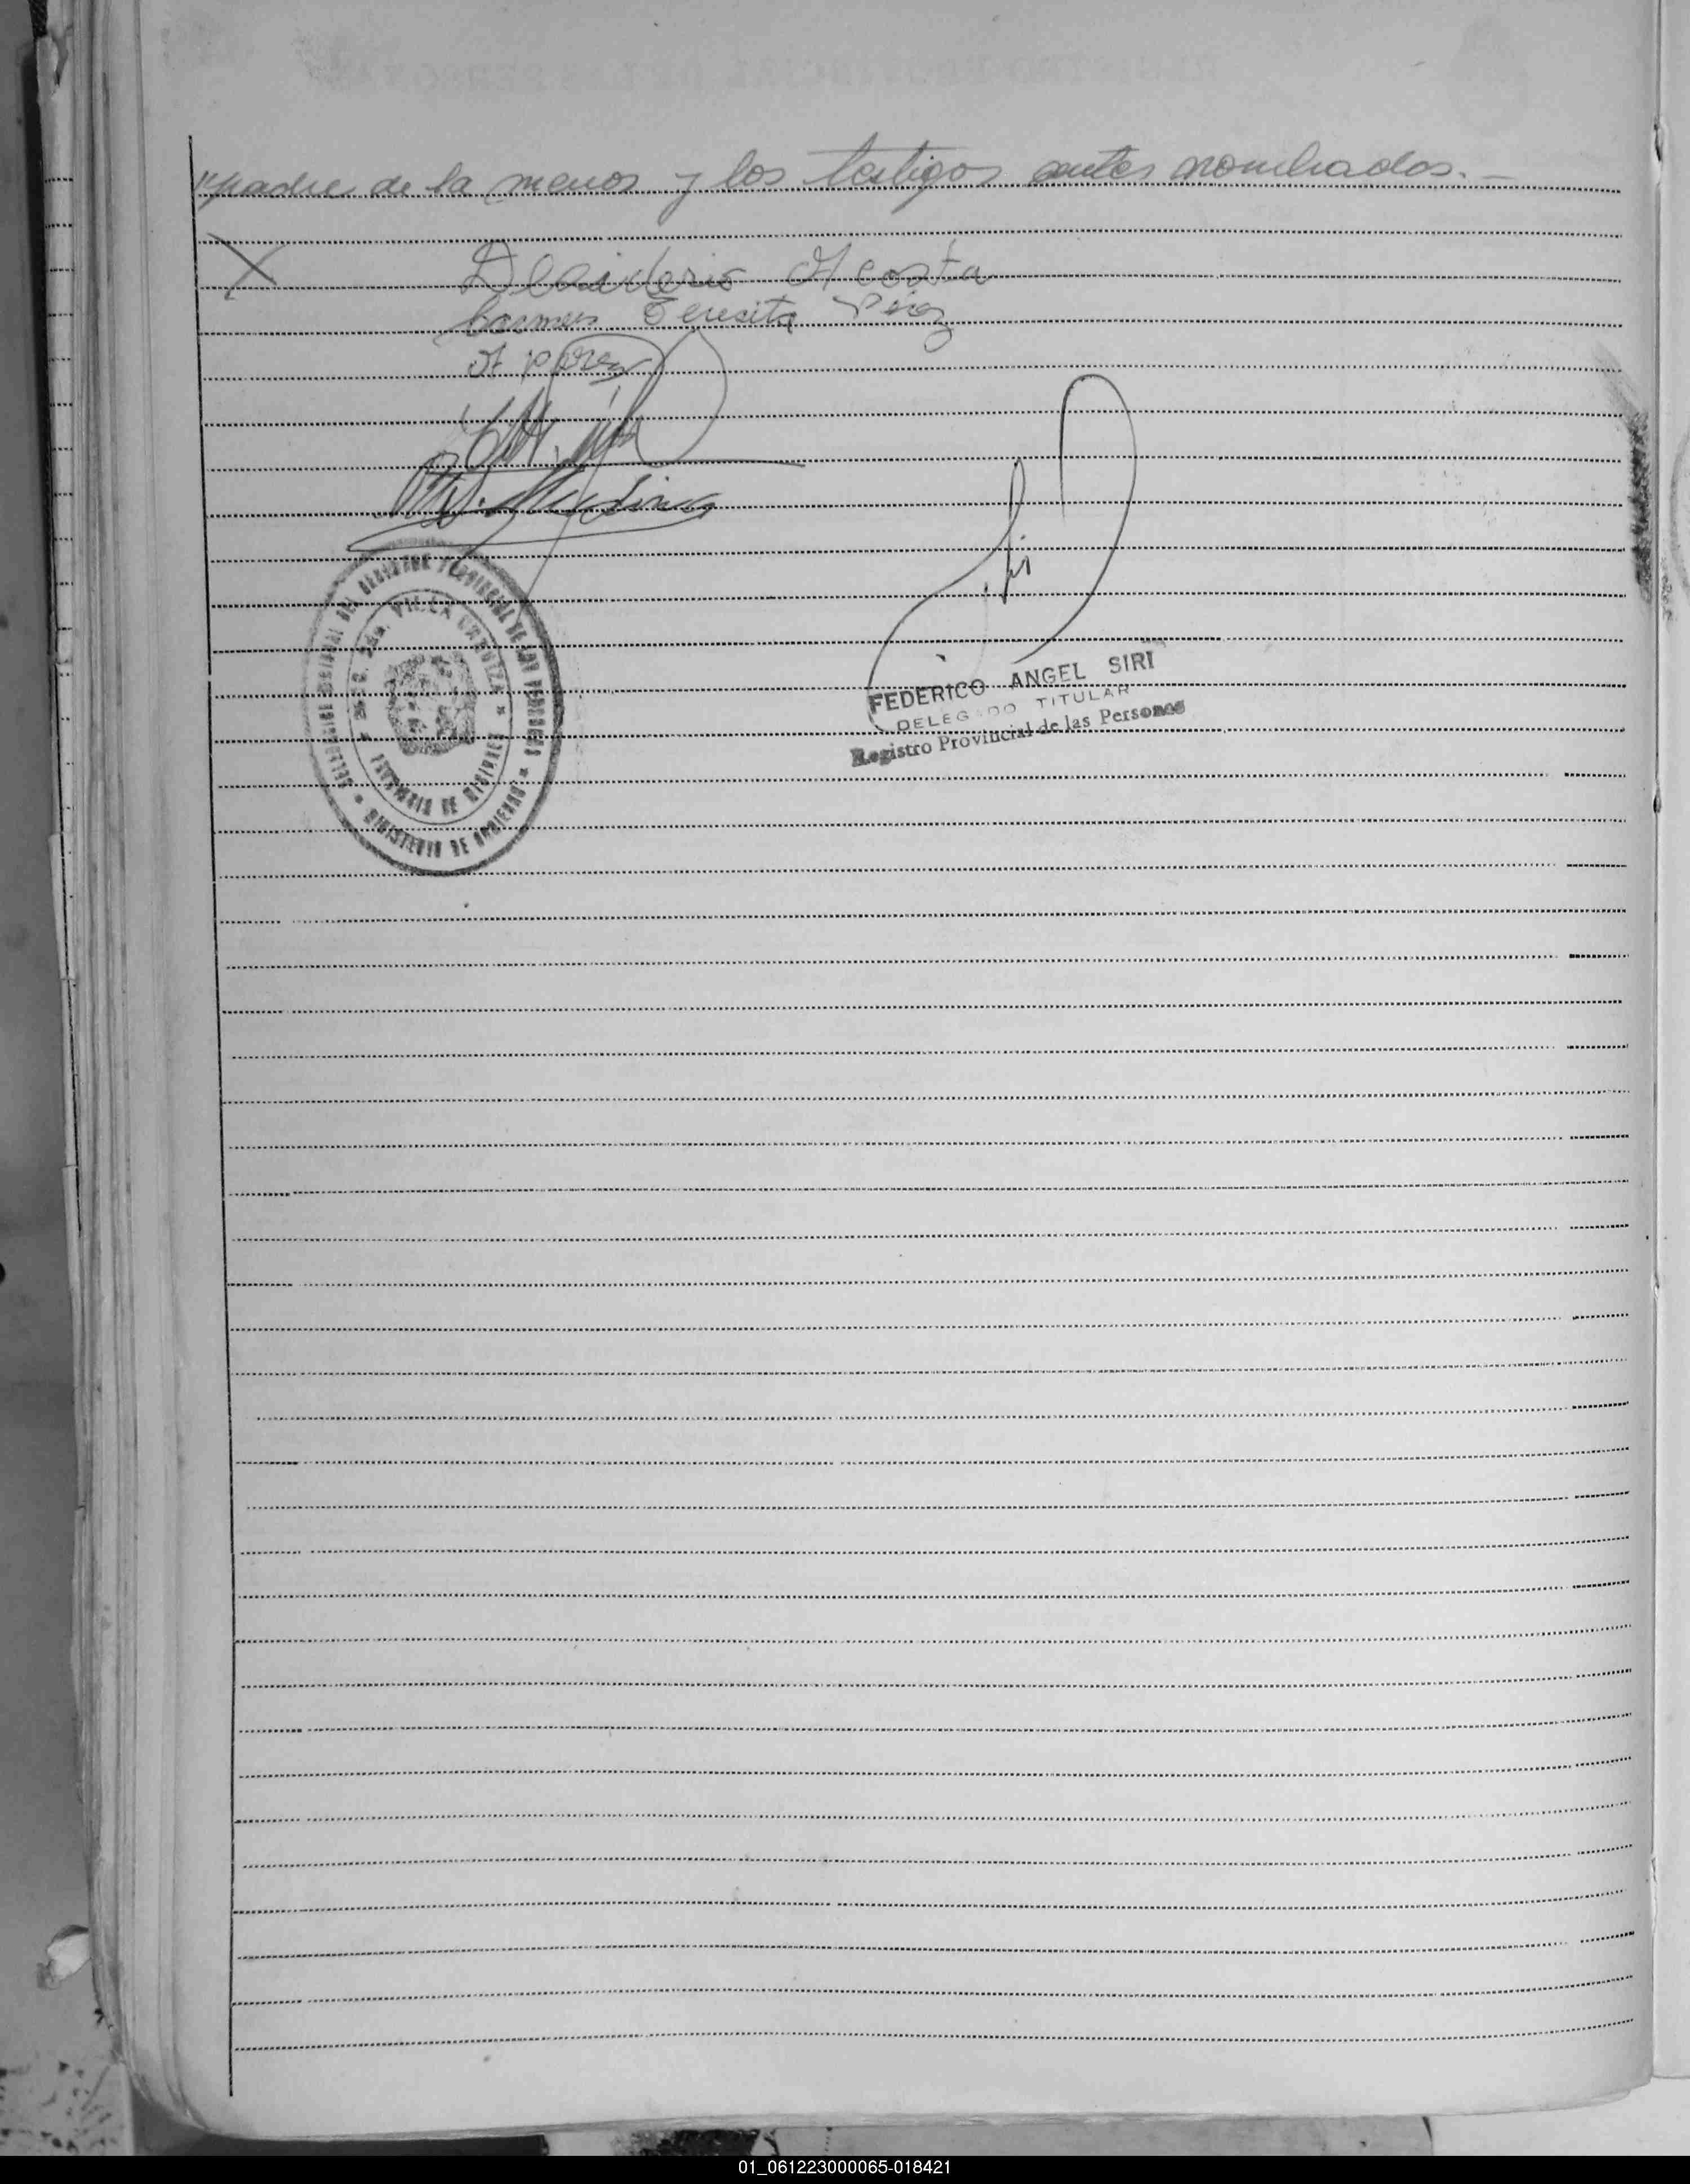 padre de la menor y los testigos antes nombrados.-
X
Desiderio Acosta
Carmen Teresita Pérez
A perez
Medina
DIRECCION GENERAL DEL REGISTRO PROVINCIAL DE LAS PERSONAS * MINISTERIO DE GOBIERNO *
VILLA URQUIZA *
PROVINCIA DE MISIONES *
FEDERICO ANGEL SIRI
DELEGADO TITULAR
Registro Provincial de las Personas
01_061223000065-018421